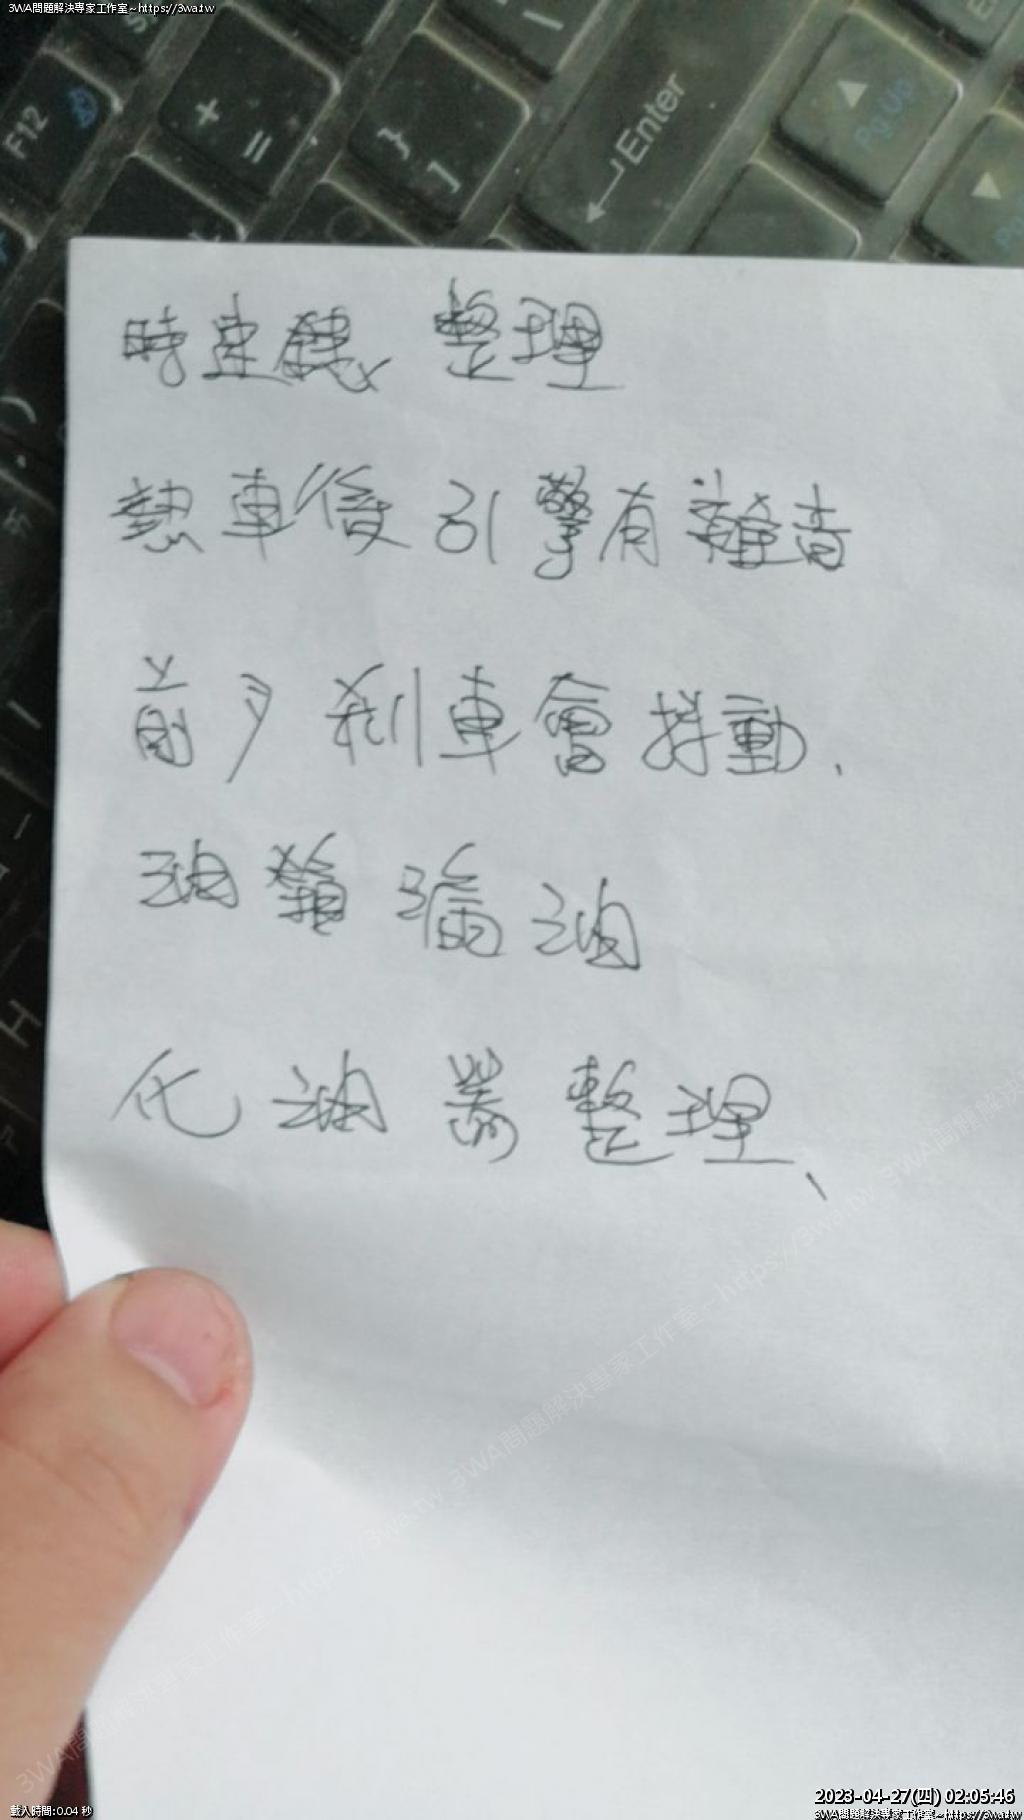 3WA問題解決專家工作室~https://3wa.tw
F12
+
=
}
]
Enter
PgUp
時速錶 整理
熱車後引擎有雜音
前 剎車會抖動.
油箱漏油
化油器整理、
H
3WA問題解決專家工作室~https://3wa.tw 3WA問題解決專家工作室~https://3wa.tw 3WA問題解決
2023-04-27(四) 02:05:46
載入時間:0.04 秒
3WA問題解決專家工作室~https://3wa.tw